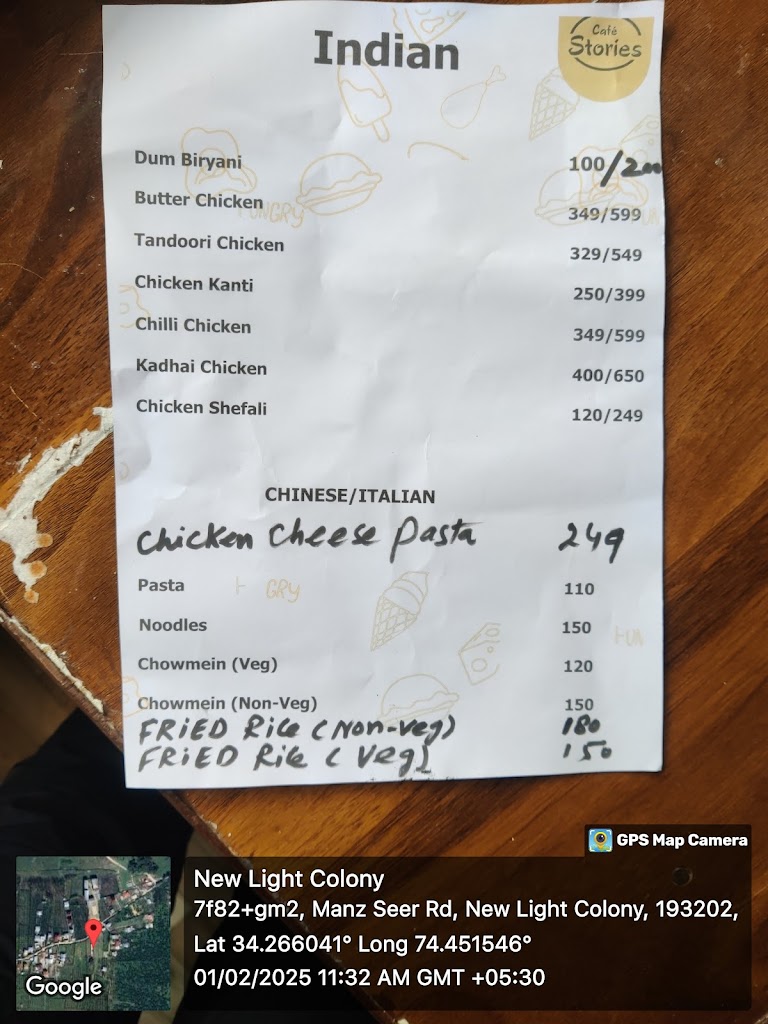 Indian
Café
Stories
Dum Biryani 100/200
Butter Chicken 349/599
HUNGRY
Tandoori Chicken 329/549
Chicken Kanti 250/399
Chilli Chicken 349/599
Kadhai Chicken 400/650
Chicken Shefali 120/249
CHINESE/ITALIAN
Chicken Cheese Pasta 249
Pasta 110
GRY
Noodles 150
Chowmein (Veg) 120
Chowmein (Non-Veg) 150
FRiED Rice (Non-veg) 180
FRiED Rice (Veg) 150
GPS Map Camera
New Light Colony
7f82+gm2, Manz Seer Rd, New Light Colony, 193202,
Lat 34.266041° Long 74.451546°
01/02/2025 11:32 AM GMT +05:30
Google